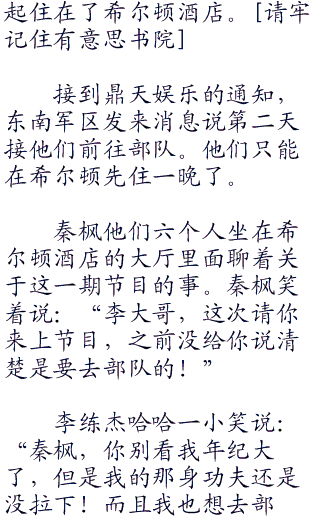 起住在了希尔顿酒店。[请牢
记住有意思书院]
接到鼎天娱乐的通知，
东南军区发来消息说第二天
接他们前往部队。他们只能
在希尔顿先住一晚了。
秦枫他们六个人坐在希
尔顿酒店的大厅里面聊着关
于这一期节目的事。秦枫笑
着说：“李大哥，这次请你
来上节目，之前没给你说清
楚是要去部队的！”
李练杰哈哈一小笑说：
“秦枫，你别看我年纪大
了，但是我的那身功夫还是
没拉下！而且我也想去部